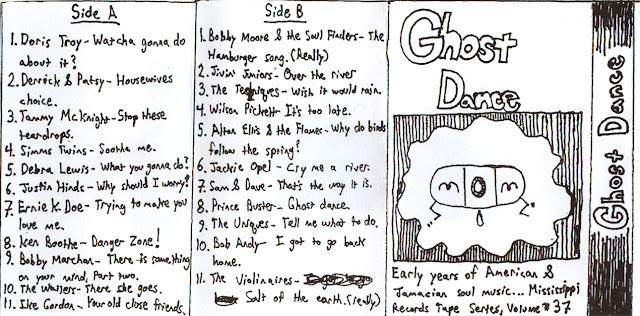 Side A
1. Doris Troy - Watcha gonna do
about it?
2. Derrick & Patsy - Housewives
choice.
3. Tammy McKnight - Stop these
teardrops.
4. Simms Twins - Soothe me.
5. Debra Lewis - What you gonna do?
6. Justin Hinds - Why should I worry?
7. Ernie K. Doe - Trying to make you
love me.
8. Ken Boothe - Danger Zone!
9. Bobby Marchan - There is something
on your mind, Part two.
10. The Wailers - There she goes.
11. Ike Gordon - Your old close friends.
Side B
1. Bobby Moore & the Soul Finders - The
Hamburger song. (Really)
2. Jivin' Juniors - Over the river
3. The Techniques - Wish it would rain.
4. Wilson Pickett - It's too late.
5. Alton Ellis & the Flames - Why do birds
follow the spring?
6. Jackie Opel - Cry me a river.
7. Sam & Dave - That's the way it is.
8. Prince Buster - Ghost dance.
9. The Uniques - Tell me what to do.
10. Bob Andy - I got to go back
home.
11. The Violinaires -
Salt of the earth. (really)
Ghost
Dance
Early years of American &
Jamacian soul music... Mississippi
Records Tape Series, Volume #37
Ghost Dance